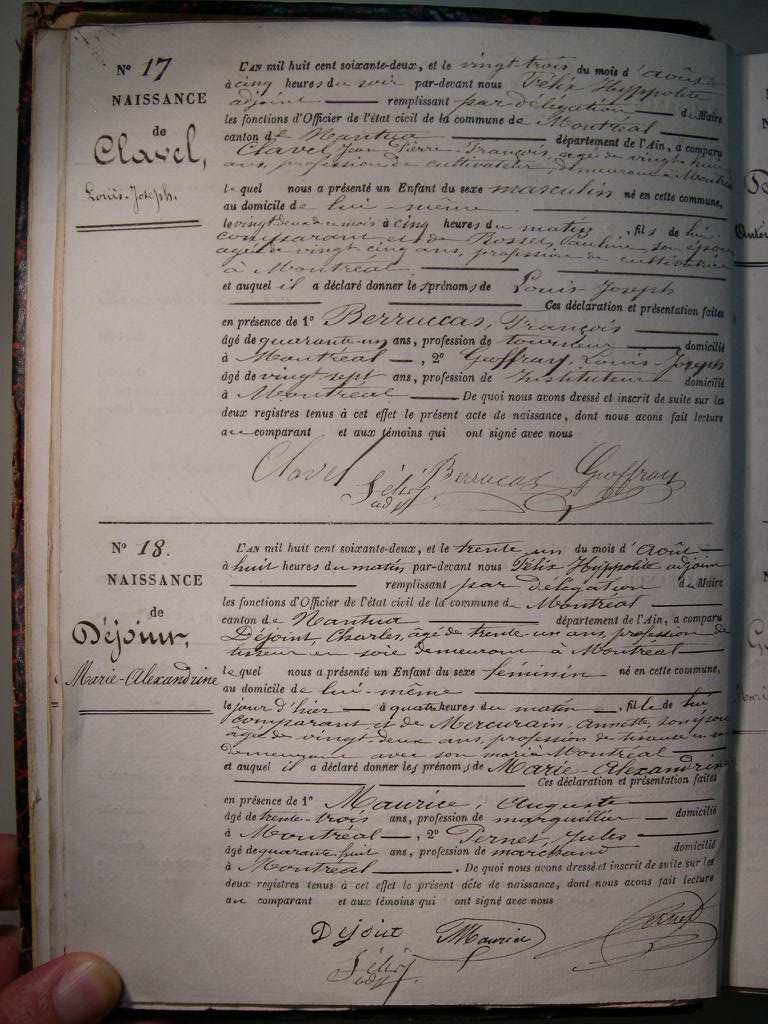 N° 17
NAISSANCE
de
Clavel,
Louis-Joseph.
L'AN mil huit cent soixante-deux, et le vingt trois du mois d'août
à cinq heures du soir par-devant nous Félix Hyppolite
adjoint remplissant par délégation du Maire
les fonctions d'Officier de l'état civil de la commune de Montréal
canton de Nantua département de l'Ain, a comparu
Clavel Jean Pierre-François, âgé de vingt huit
ans, profession de cultivateur, demeurant à Montréal
lequel nous a présenté un Enfant du sexe masculin né en cette commune,
au domicile de lui-même
le vingt deux du mois à cinq heures du matin, fils de lui
comparant et de Rosset, Pauline, son épouse
âgée de vingt cinq ans, profession de cultivatrice
à Montréal
et auquel il a déclaré donner les prénoms de Louis-Joseph
Ces déclaration et présentation faites
en présence de 1° Berruccas, François
âgé de quarante-un ans, profession de tourneur domicilié
à Montréal, 2° Geoffray, Louis-Joseph
âgé de vingt sept ans, profession de Instituteur domicilié
à Montréal De quoi nous avons dressé et inscrit de suite sur les
deux registres tenus à cet effet le présent acte de naissance, dont nous avons fait lecture
au comparant et aux témoins qui ont signé avec nous
Clavel Berrucas Geoffray
Félix
adjt
N° 18.
NAISSANCE
de
Déjoint,
Marie-Alexandrine
L'AN mil huit cent soixante-deux, et le trente un du mois d'Août
à huit heures du matin par-devant nous Félix Hyppolite adjoint
remplissant par délégation du Maire
les fonctions d'Officier de l'état civil de la commune de Montréal
canton de Nantua département de l'Ain, a comparu
Déjoint, Charles, âgé de trente-un ans, profession de
tisseur en soie demeurant à Montréal
lequel nous a présenté un Enfant du sexe féminin né en cette commune,
au domicile de lui-même
le jour d'hier à quatre heures du matin, fille de lui
comparant et de Mercurain, Annette, son épouse
âgée de vingt-deux ans, profession de tisseuse en soie
demeurant avec son mari à Montréal
et auquel il a déclaré donner les prénoms de Marie-Alexandrine
Ces déclaration et présentation faites
en présence de 1° Maurice, Auguste
âgé de trente-trois ans, profession de marguillier domicilié
à Montréal, 2° Pernet, Jules
âgé de quarante huit ans, profession de marchand domicilié
à Montréal. De quoi nous avons dressé et inscrit de suite sur les
deux registres tenus à cet effet le présent acte de naissance, dont nous avons fait lecture
au comparant et aux témoins qui ont signé avec nous
Déjoint Maurice Pernet
Félix
adjt